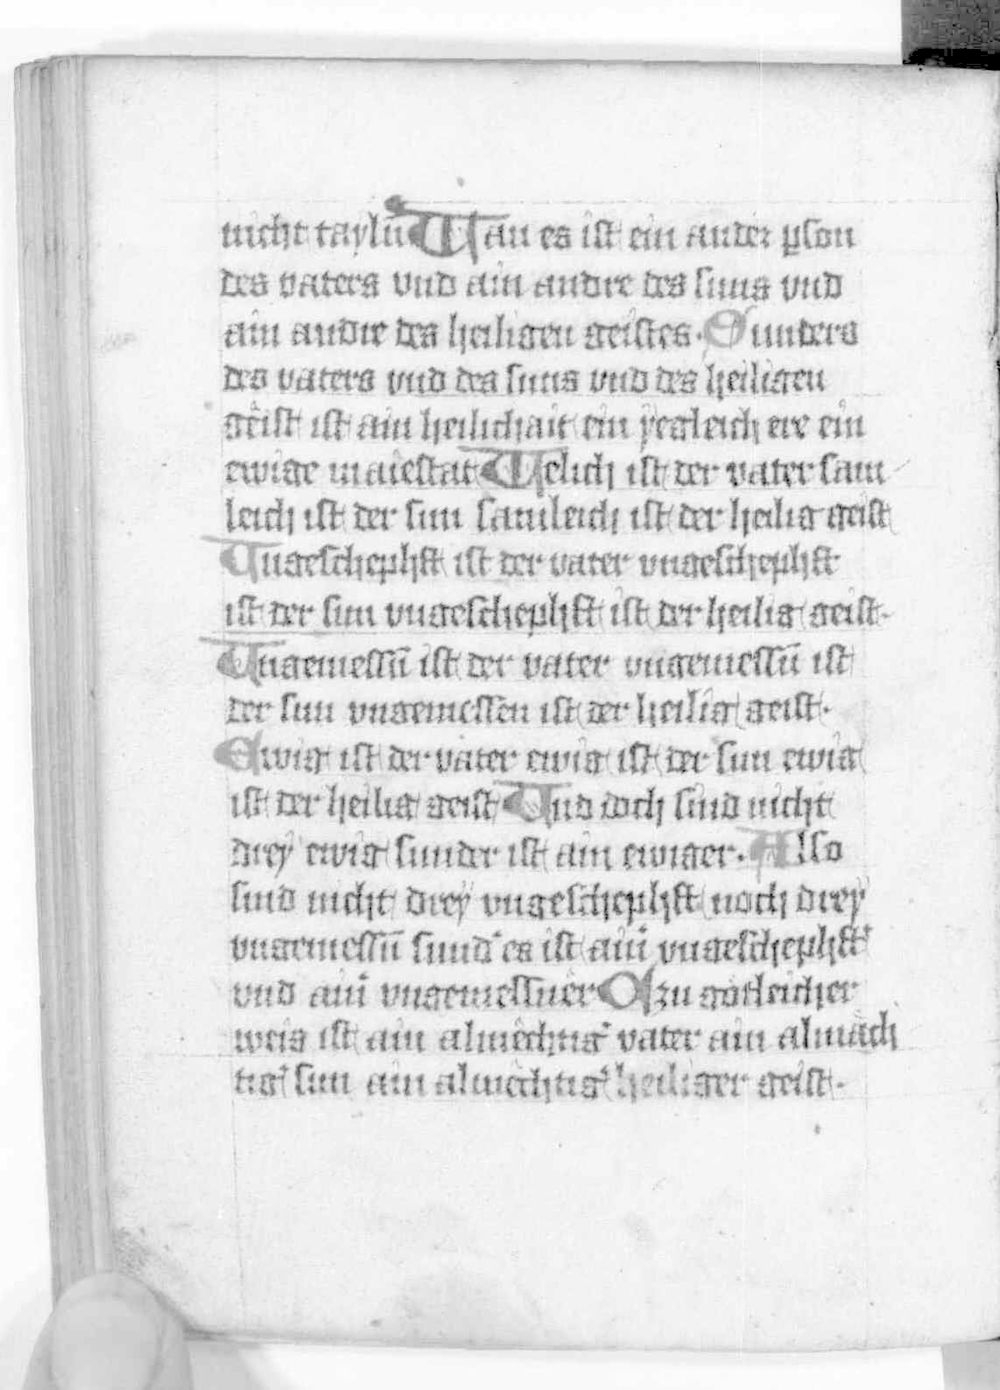 nicht tayln̄ Wan es ist ein ander ꝑson
des vaters vnd ain andre des suns vnd
ain andre des heiligen geistes. Sunders
des vaters vnd des suns vnd des heiligen
geist ist ain heilichait ein yegleich ere ein
ewige maiestat Welich ist der vater sam
leich ist der sun samleich ist der heilig geist
Vngeschephft ist der vater vngeschephft
ist der sun vngeschephft ist der heilig geist.
Vngemessn̄ ist der vater vngemessn̄ ist
der sun vngemessen ist der heilig geist.
Ewig ist der vater ewig ist der sun ewig
ist der heilig geist Vnd doch sind nicht
drey ewig sunder ist ain ewiger. Also
sind nicht drey vngeschephft noch drey
vngemessn̄ sund' es ist ain' vngeschephft'
vnd ain' vngemessner Also zu gotleicher
weis ist ain almechtig' vater ain almäch
tig' sun ain almechtig' heiliger geist.